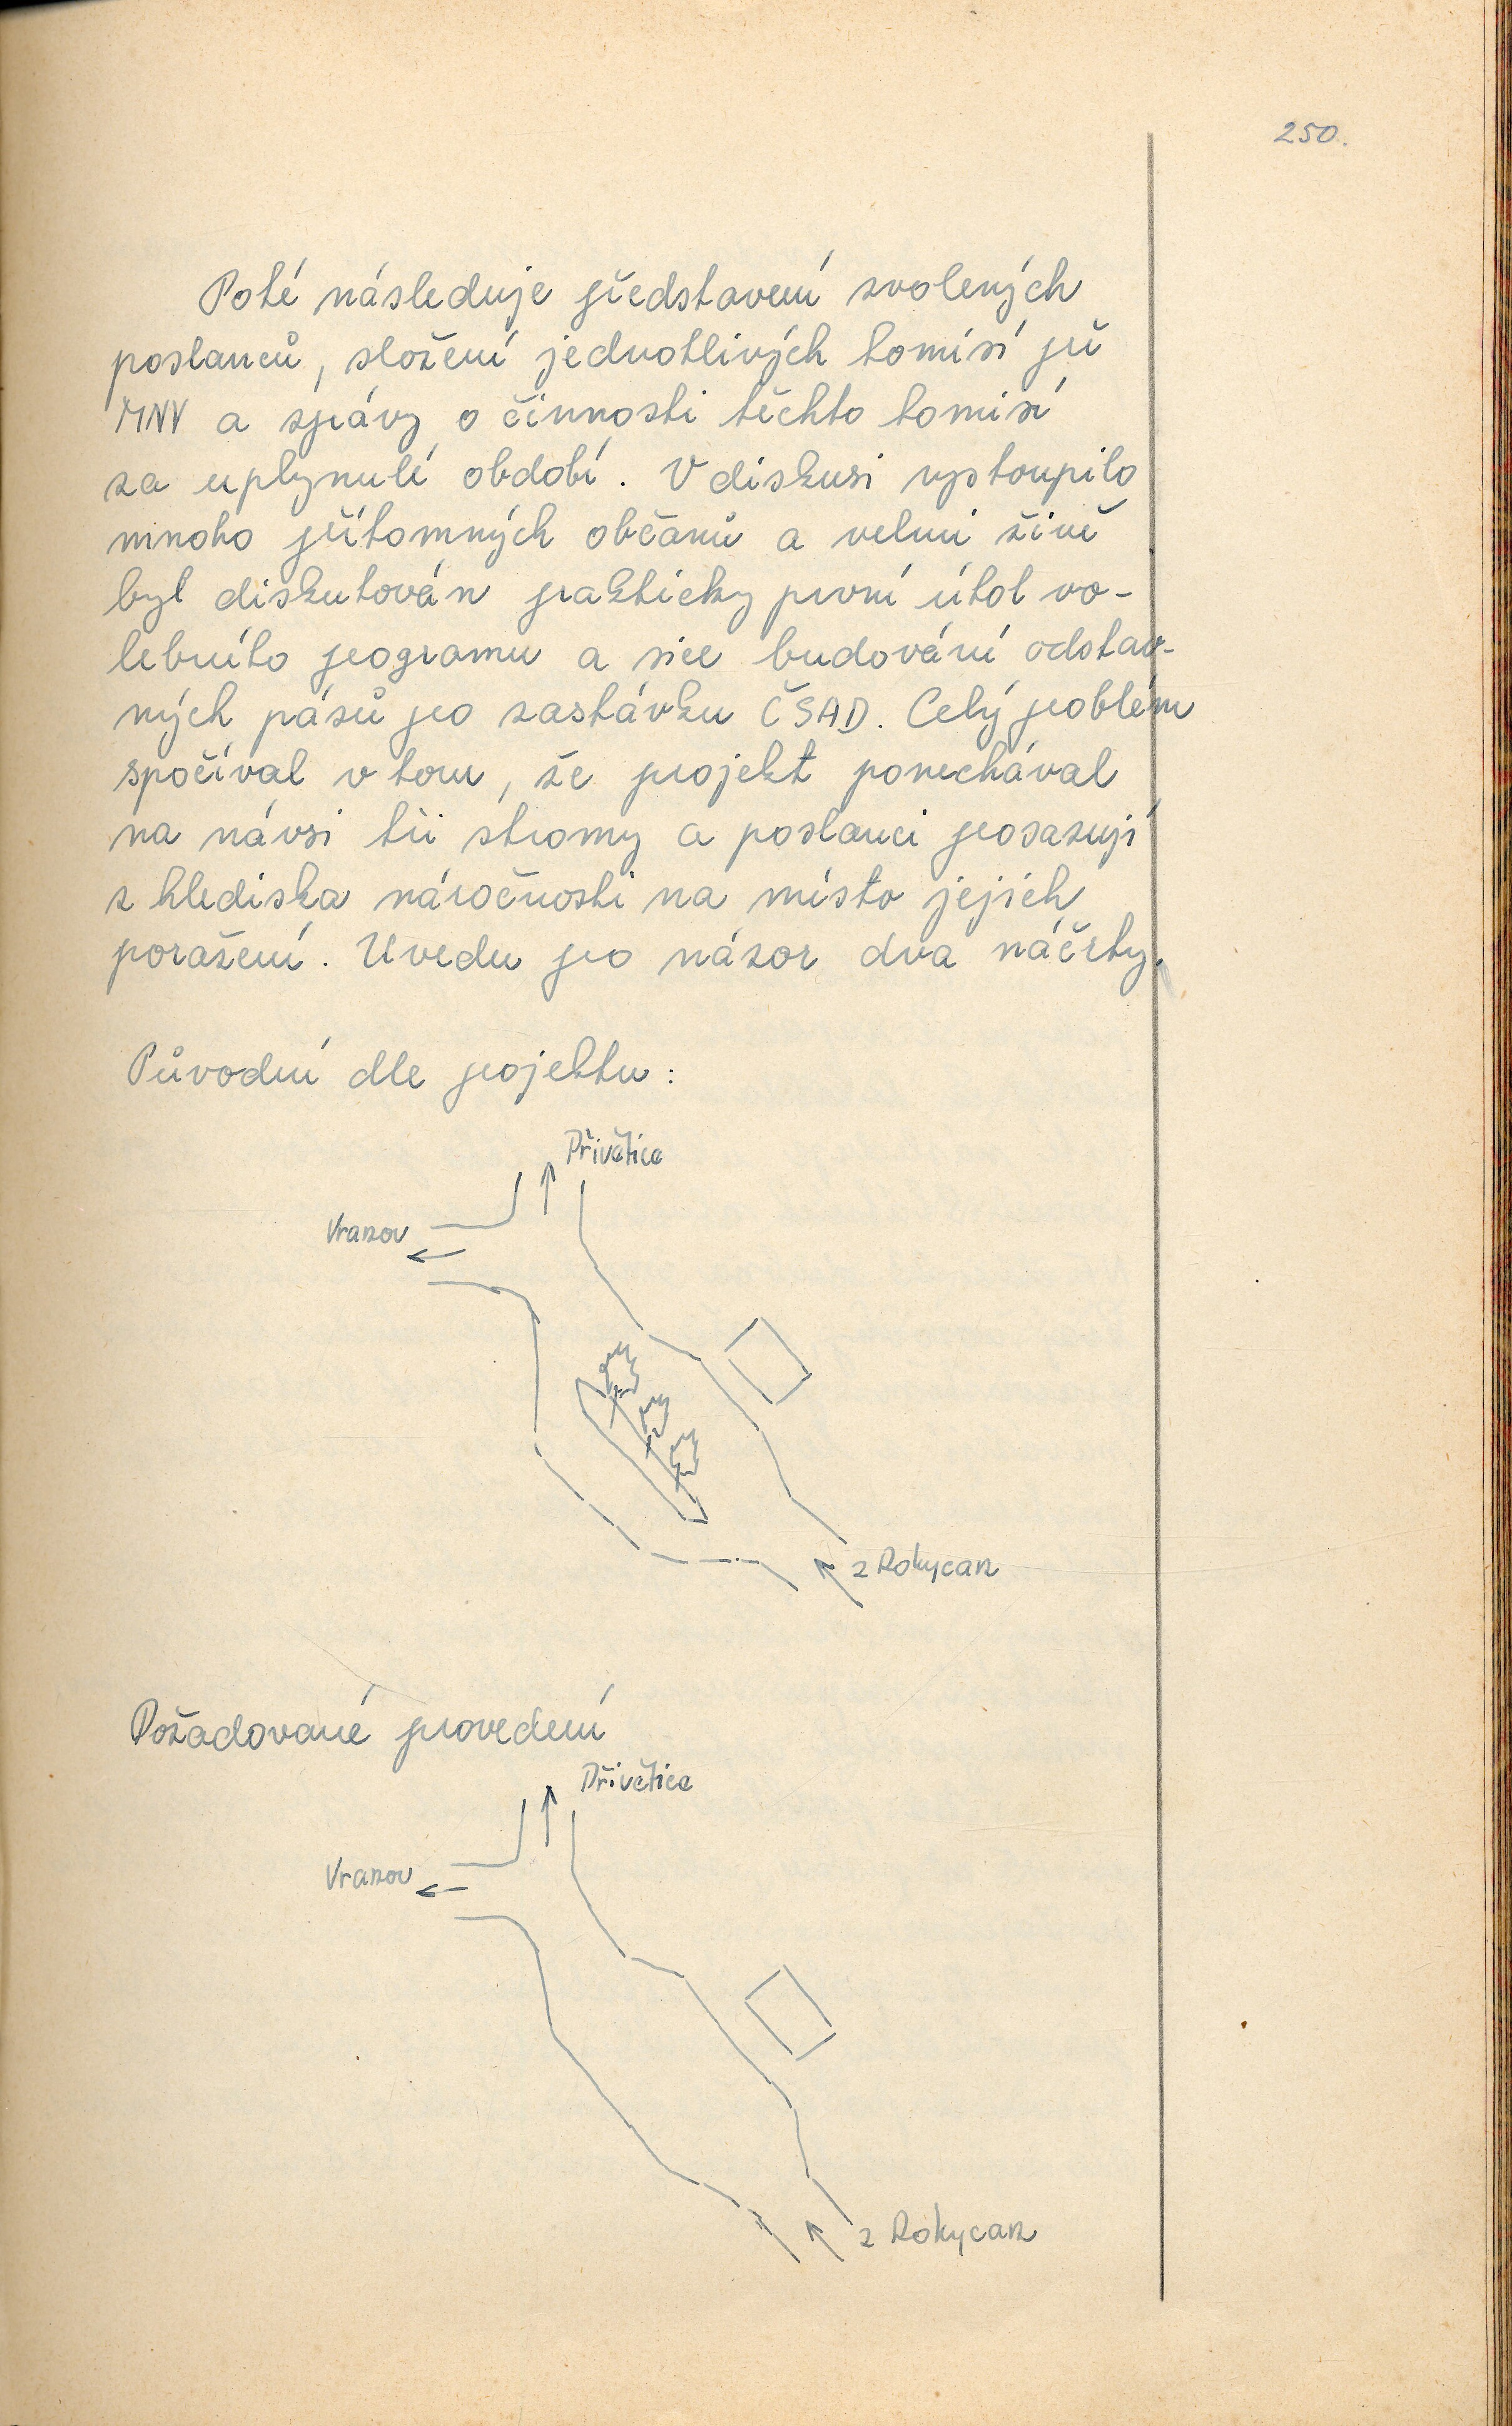 250.
Poté následuje představení zvolených
poslanců, složení jednotlivých komisí při
MNV a zprávy o činnosti těchto komisí
za uplynulé období. V diskusi vystoupilo
mnoho přítomných občanů a velmi živě
byl diskutován prakticky první úkol vo-
lebního programu a sice budování odstav-
ných pásů pro zastávku ČSAD. Celý problém
spočíval v tom, že projekt ponechával
na návsi tři stromy a poslanci prosazují
z hlediska náročnosti na místo jejich
poražení. Uvedu pro názor dva náčrty.
Původní dle projektu:
Přivětice
Vranov
z Rokycan
Požadované provedení
Přivětice
Vranov
z Rokycan